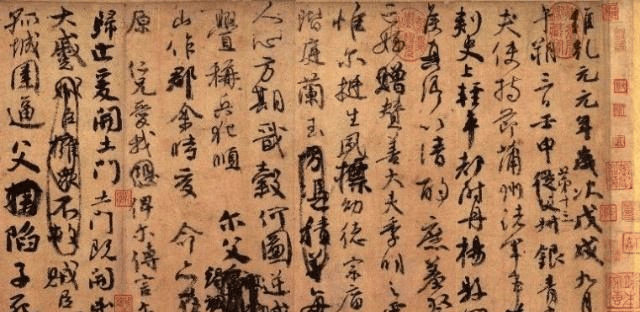 維乾元元年歲次戊戌九月
午朔三日壬申第十三叔銀青
夫使持節蒲州諸軍事
刺史上輕車都尉丹楊縣
侯真卿以清酌庶羞祭
亡姪贈贊善大夫季明之
惟爾挺生夙標幼德宗廟
階庭蘭玉方憑積善每
人心方期戩穀何圖逆賊
釁稱兵犯順 爾父竭誠
山作郡余時受 命亦
原 仁兄愛我恐俾爾傳言
歸止爰開土門土門既開
大蹙賊臣擁眾不救賊臣
孤城圍逼父擒陷子死